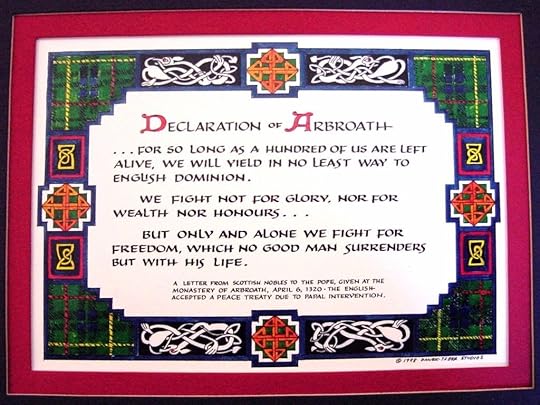 DECLARATION OF ARBROATH
...FOR SO LONG AS A HUNDRED OF US ARE LEFT
ALIVE, WE WILL YIELD IN NO LEAST WAY TO
ENGLISH DOMINION.
WE FIGHT NOT FOR GLORY, NOR FOR
WEALTH NOR HONOURS...
BUT ONLY AND ALONE WE FIGHT FOR
FREEDOM, WHICH NO GOOD MAN SURRENDERS
BUT WITH HIS LIFE.
A LETTER FROM SCOTTISH NOBLES TO THE POPE, GIVEN AT THE
MONASTERY OF ARBROATH, APRIL 6, 1320 - THE ENGLISH
ACCEPTED A PEACE TREATY DUE TO PAPAL INTERVENTION.
© 1998 STUDIOS